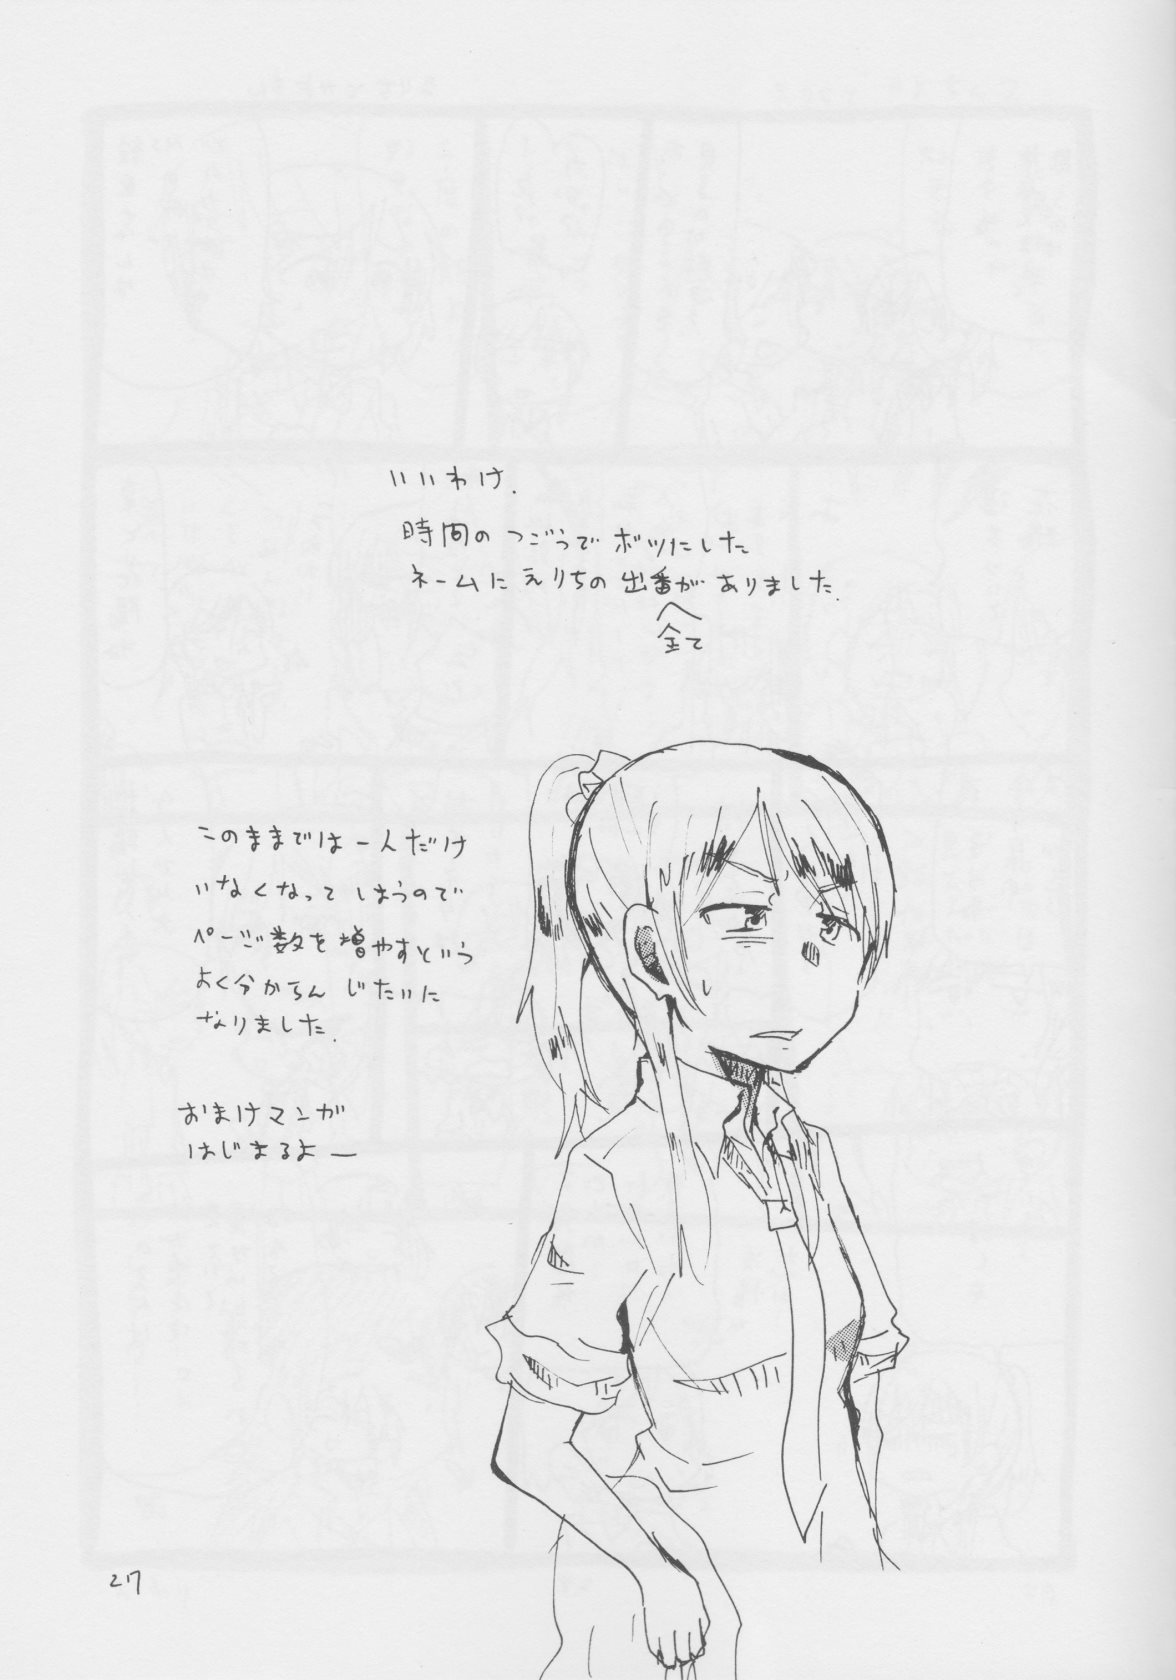 いいわけ.
時間のつごうでボツにした
ネームにえりちの出番がありました.
全て
このままでは一人だけ
いなくなってしまうので
ページ数を増やすという
よく分からん じたいに
なりました.
おまけマンガ
はじまるよー
27